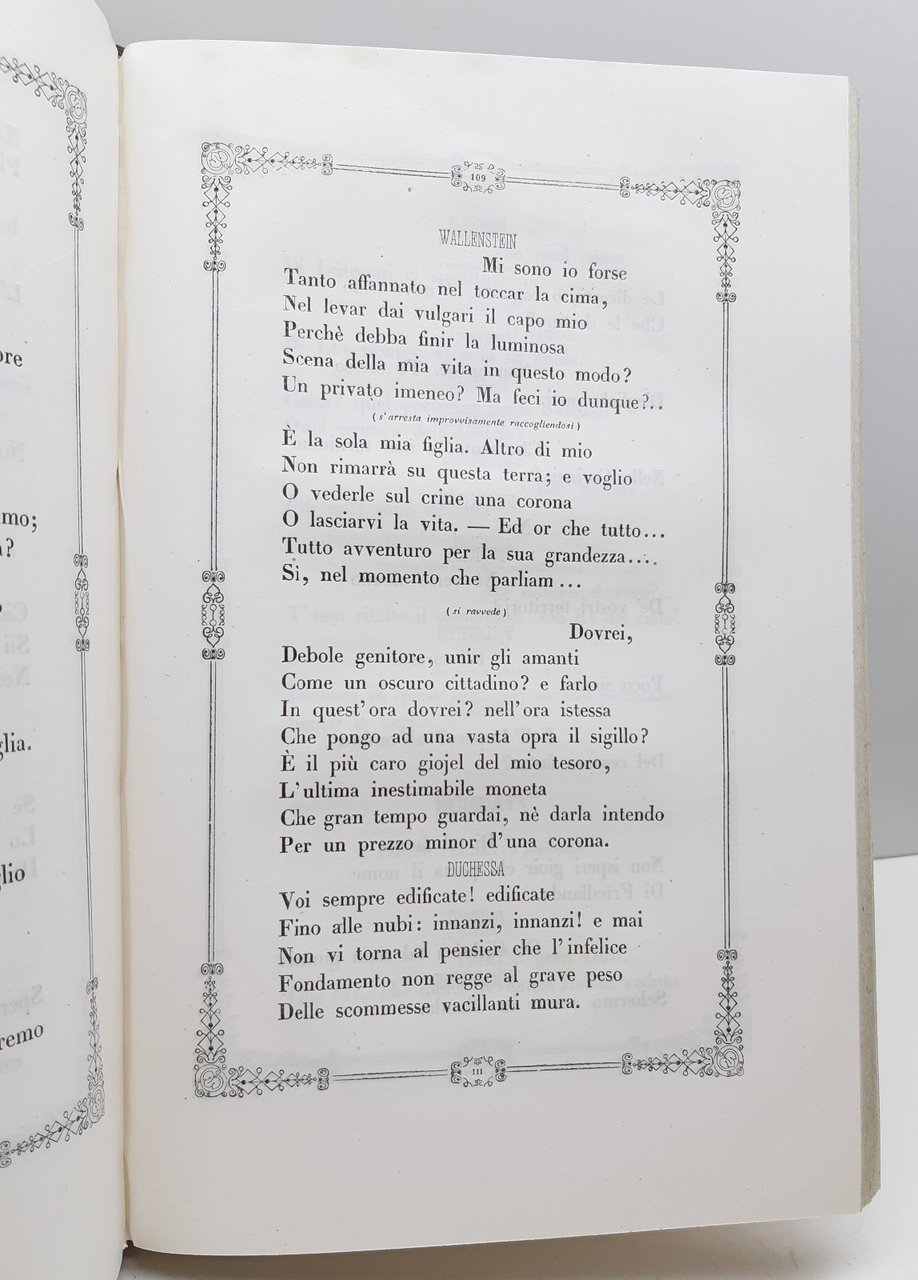 ore
amo;
a?
o
glia.
glio
remo
109
WALLENSTEIN
Mi sono io forse
Tanto affannato nel toccar la cima,
Nel levar dai vulgari il capo mio
Perchè debba finir la luminosa
Scena della mia vita in questo modo?
Un privato imeneo? Ma feci io dunque?..
(s'arresta improvvisamente raccogliendosi)
È la sola mia figlia. Altro di mio
Non rimarrà su questa terra; e voglio
O vederle sul crine una corona
O lasciarvi la vita. — Ed or che tutto...
Tutto avventuro per la sua grandezza....
Sì, nel momento che parliam ...
(si ravvede)
Dovrei,
Debole genitore, unir gli amanti
Come un oscuro cittadino? e farlo
In quest'ora dovrei? nell'ora istessa
Che pongo ad una vasta opra il sigillo?
È il più caro giojel del mio tesoro,
L'ultima inestimabile moneta
Che gran tempo guardai, nè darla intendo
Per un prezzo minor d'una corona.
DUCHESSA
Voi sempre edificate! edificate
Fino alle nubi: innanzi, innanzi! e mai
Non vi torna al pensier che l'infelice
Fondamento non regge al grave peso
Delle scommesse vacillanti mura.
III